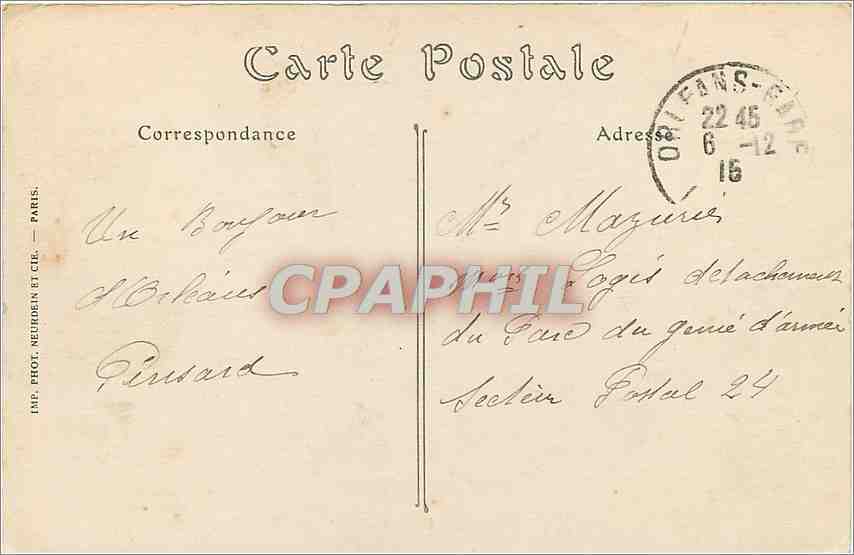 Carte Postale
Correspondance
Adresse
ORLEANS-GARE
22 45
6 -12
16
IMP. PHOT. NEURDEIN ET CIE. — PARIS.
Un Bonjour
d'Orléans
Pensard
Mr Mazurié
Logis detachement
du Parc du genié d'armée
Secteur Postal 24
CPAPHIL